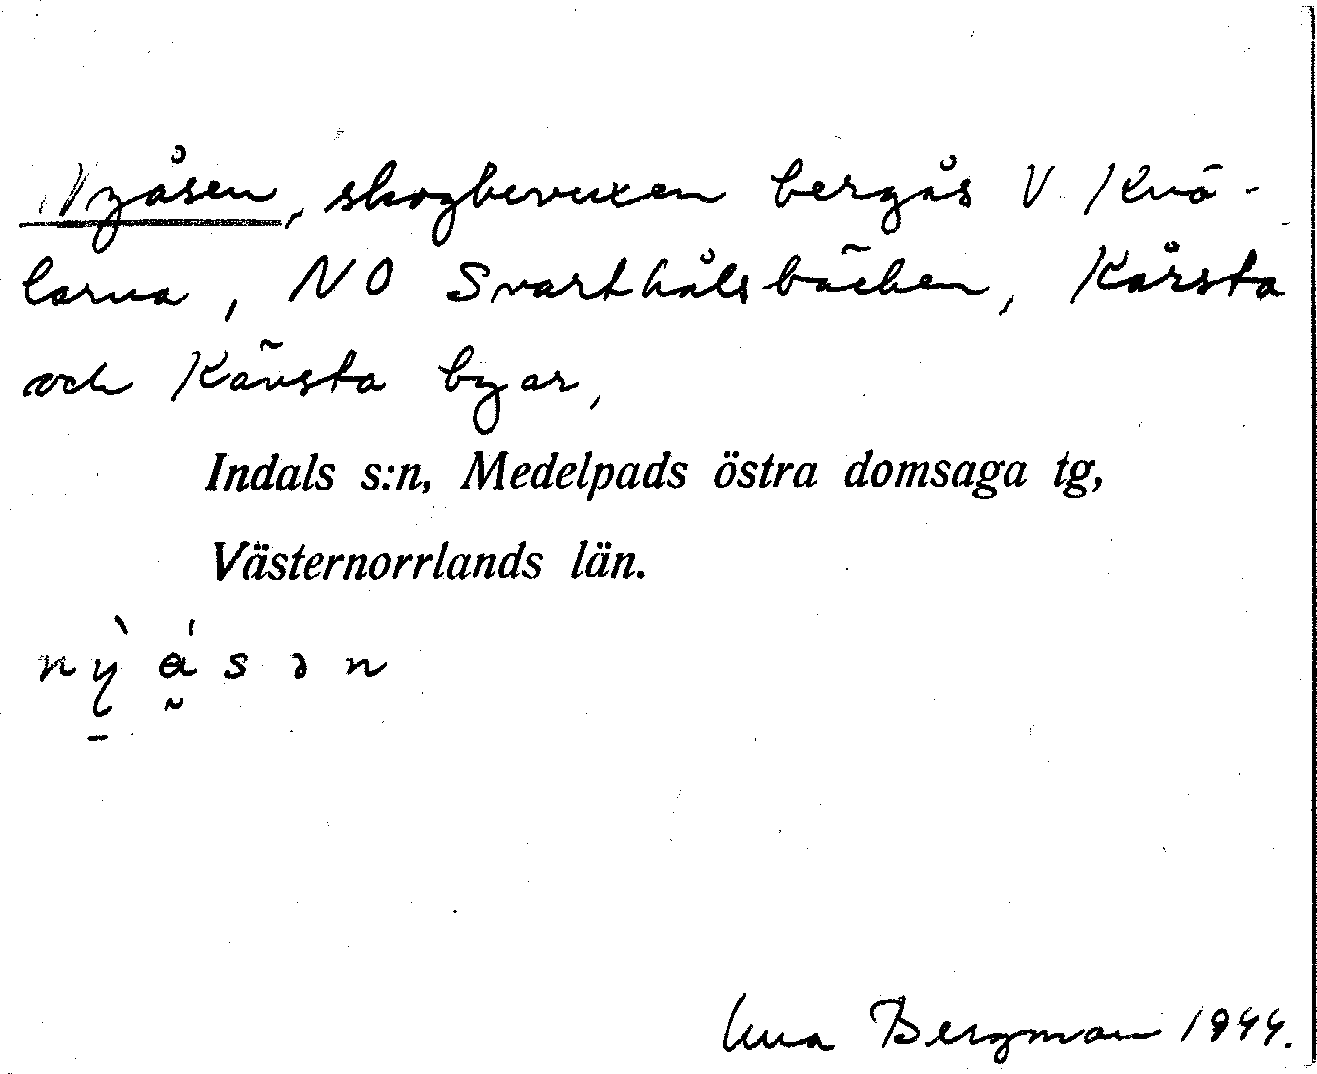 Nyåsen, skogbevuxen bergås V Kvä-
larna, NO Svarthålsbäcken, Kårsta
och Kävsta byar,
Indals s:n, Medelpads östra domsaga tg,
Västernorrlands län.
nỳ ás ə n
Bergman 1944.